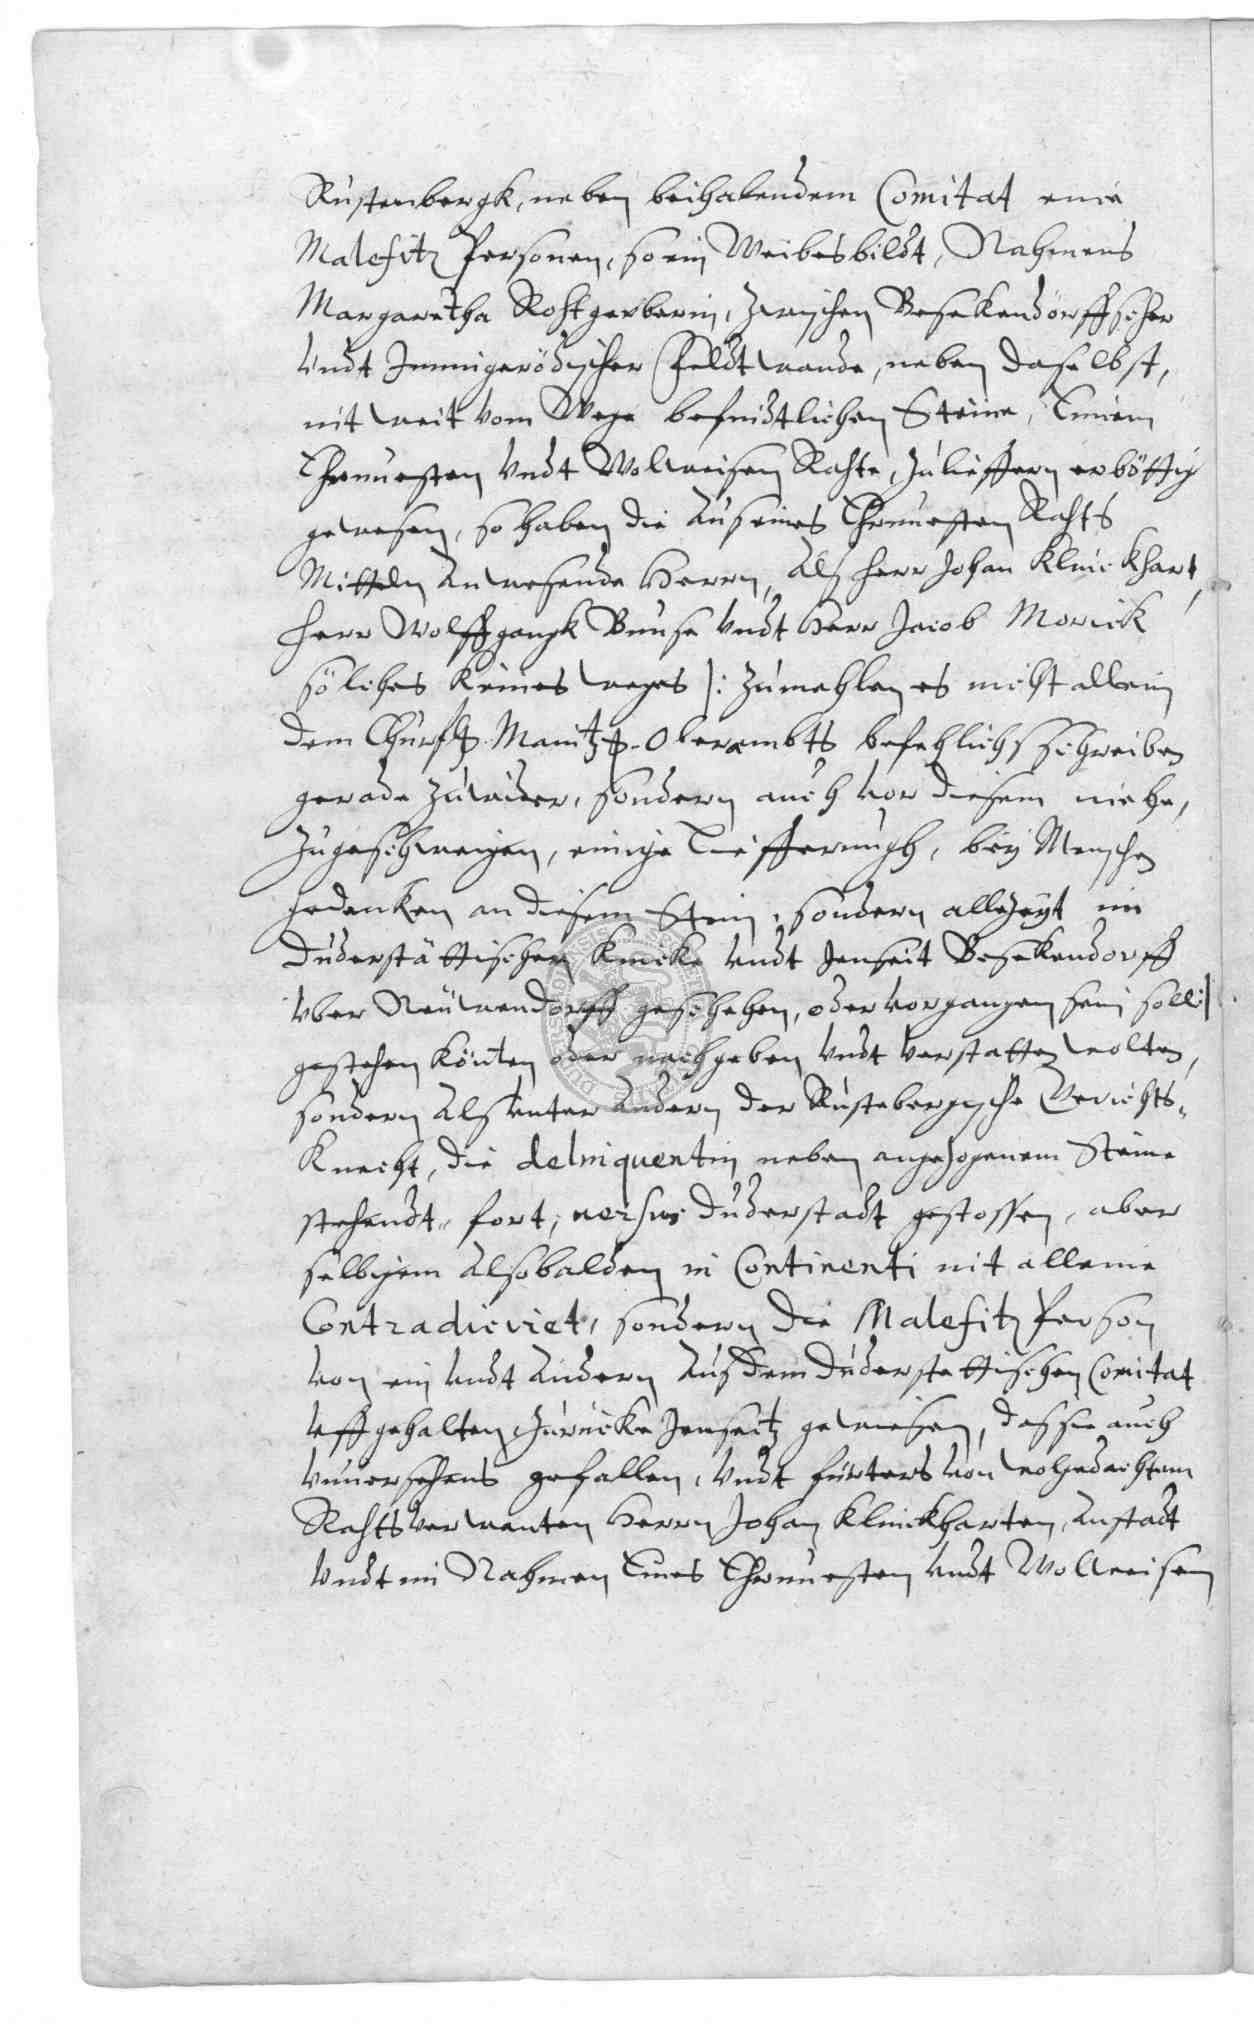 Rustenbergk, neben beihabendem Comitat eine
Malefitz Personen, so ein Weibesbildt, Nahmens
Margaretha Rohtgerberin, zwischen Besekendörffischer
Undt Immigerödischer Feldtwande, neben daselbst,
nit weit vom Wege befindtlichen Steine, Einem
Ehrnuesten Undt Wolweisen Rahte, zu lieffern erböttig
gewesen, so haben die Aus eines Ehrnuesten Rahts
Mitteln Anwesende Herrn, Als Herr Johan Klinckhart,
Herr Wolffgangk Buuse Undt Herr Jacob Morick
söliches keines weges |: zumahlen es nicht allein
dem Churfl. Maintz. Oberambts befehlichsschreiben
gerade zuwider, sondern auch vor diesem niehe,
zugeschweigen, einige Lieffernugh, bey Menschen
gedenken an diesem Stein, sondern allezeyt im
Duderstättischen Knicke undt Jenseit Besekendorff
Vber Neuwendorff geschehen, oder vorgangen sein soll :|
gestehen könten oder nachgeben Undt verstatten wolten,
sondern Als Unter Andern der Rustebergische Gerichts-
Knecht, die delinquentin neben angezogenem Steine
stehendt, fort, versus Duderstadt gestossen, aber
selbigem Alsobalden in Continenti nit alleine
Contradiciret, sondern die Malefitz Person
von ein undt Andern Aus dem Duderstettischen Comitat
Uffgehalten Zurücke Jenseitz gewiesen, das sie auch
Unuersehens gefallen, Undt fürters von wolgedachtem
Rahtsverwanten Herrn Johan Klinckharten, Anstadt
Undt im Nahmen Eines Ehrnuesten undt Wollweisen